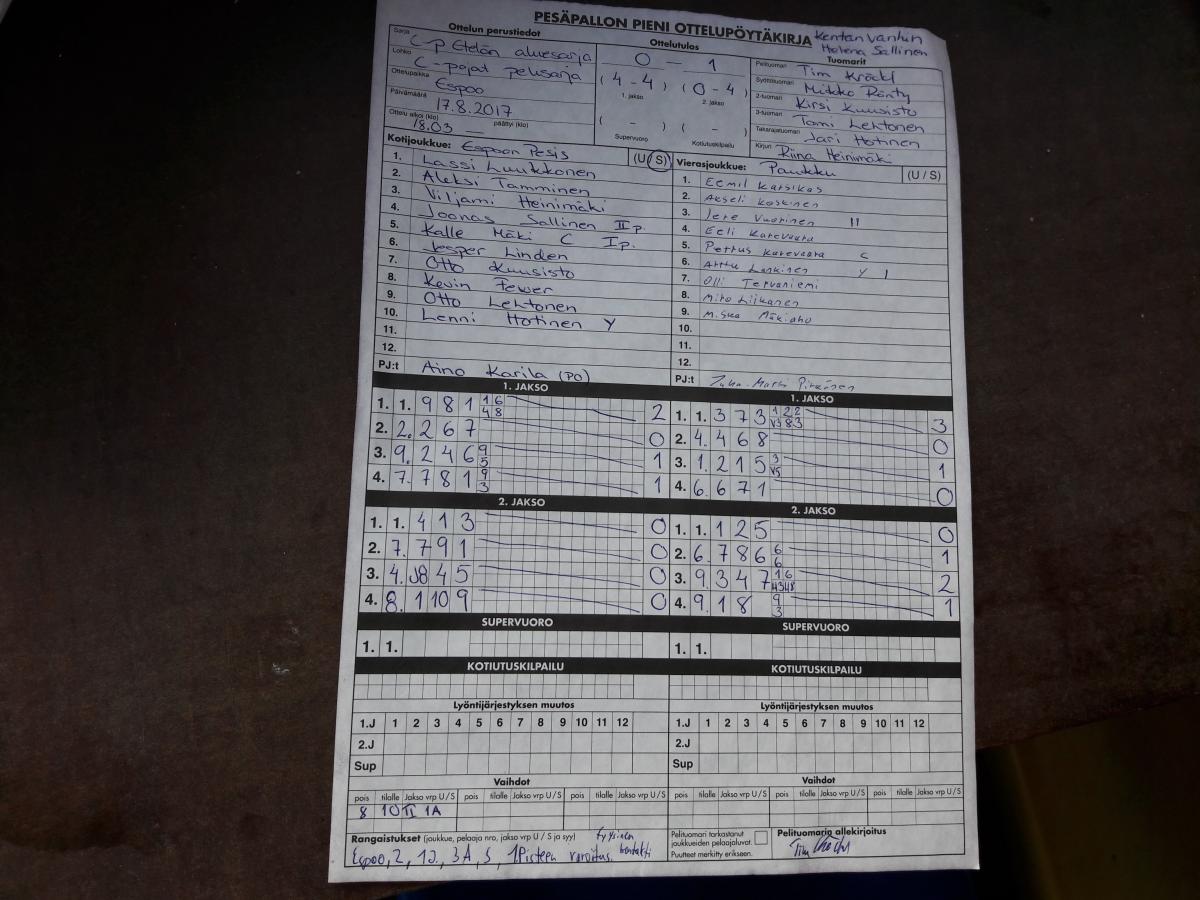 PESÄPALLON PIENI OTTELUPÖYTÄKIRJA
Kentän vanhin
Helena Sallinen
Ottelun perustiedot
Sarja C-p Etelän aluesarja
Lohko C-pojat pelisarja
Ottelupaikka Espoo
Päivämäärä 17.8.2017
Ottelu alkoi (klo) 18.03 päättyi (klo) —
Ottelutulos
0 – 1
(4 - 4) (0 - 4)
1. jakso 2. jakso
( - ) ( - )
Supervuoro Kotiutuskilpailu
Tuomarit
Pelituomari Tim Kröckl
Syöttötuomari Mikko Ränty
2-tuomari Kirsi Kuusisto
3-tuomari Tomi Lehtonen
Takarajatuomari Jari Hotinen
Kirjuri Riina Heinimäki
Kotijoukkue: Espoon Pesis (U / S)
1. Lassi Luukkonen
2. Aleksi Tamminen
3. Viljami Heinimäki
4. Joonas Sallinen II p.
5. Kalle Mäki C I p.
6. Jesper Linden
7. Otto Kuusisto
8. Kevin Fewer
9. Otto Lehtonen
10. Lenni Hotinen Y
11.
12.
PJ:t Aino Karila (PO)
Vierasjoukkue: Pankku (U / S)
1. Eemil Karsikas
2. Akseli Koskinen
3. Jere Vuorinen II
4. Eeli Karevaara
5. Pettus Karevaara C
6. Arttu Lankinen Y I
7. Olli Tervaniemi
8. Miro Liikanen
9. Miska Mäkiaho
10.
11.
12.
PJ:t
1. JAKSO
1. 1. 9 8 1 16 48 2
2. 2. 2 6 7 0
3. 9. 2 4 6 9 5 1
4. 7. 7 8 1 9 3 1
1. JAKSO
1. 1. 3 7 3 122 V383 3
2. 4. 4 6 8 0
3. 1. 2 1 5 3 V5 1
4. 6. 6 7 1 0
2. JAKSO
1. 1. 4 1 3 0
2. 7. 7 9 1 0
3. 4. J8 4 5 0
4. 8. 1 10 9 0
2. JAKSO
1. 1. 1 2 5 0
2. 6. 7 8 6 6 6 1
3. 9. 3 4 7 16 2
4. 9. 1 8 9 3 1
SUPERVUORO
1. 1.
SUPERVUORO
1. 1.
KOTIUTUSKILPAILU
KOTIUTUSKILPAILU
Lyöntijärjestyksen muutos
1.J 1 2 3 4 5 6 7 8 9 10 11 12
2.J
Sup
Lyöntijärjestyksen muutos
1.J 1 2 3 4 5 6 7 8 9 10 11 12
2.J
Sup
Vaihdot
pois tilalle Jakso vrp U / S pois tilalle Jakso vrp U / S pois tilalle Jakso vrp U / S
8 10 II 1A
Vaihdot
pois tilalle Jakso vrp U / S pois tilalle Jakso vrp U / S pois tilalle Jakso vrp U / S
Rangaistukset (joukkue, pelaaja nro, jakso vrp U / S ja syy) fyysinen
Espoo, 2, 1J, 3A, S, 1Pisteen varoitus. kontakti
Pelituomari tarkastanut
joukkueiden pelaajaluvat.
Puutteet merkitty erikseen.
Pelituomarin allekirjoitus
Tim Kröckl